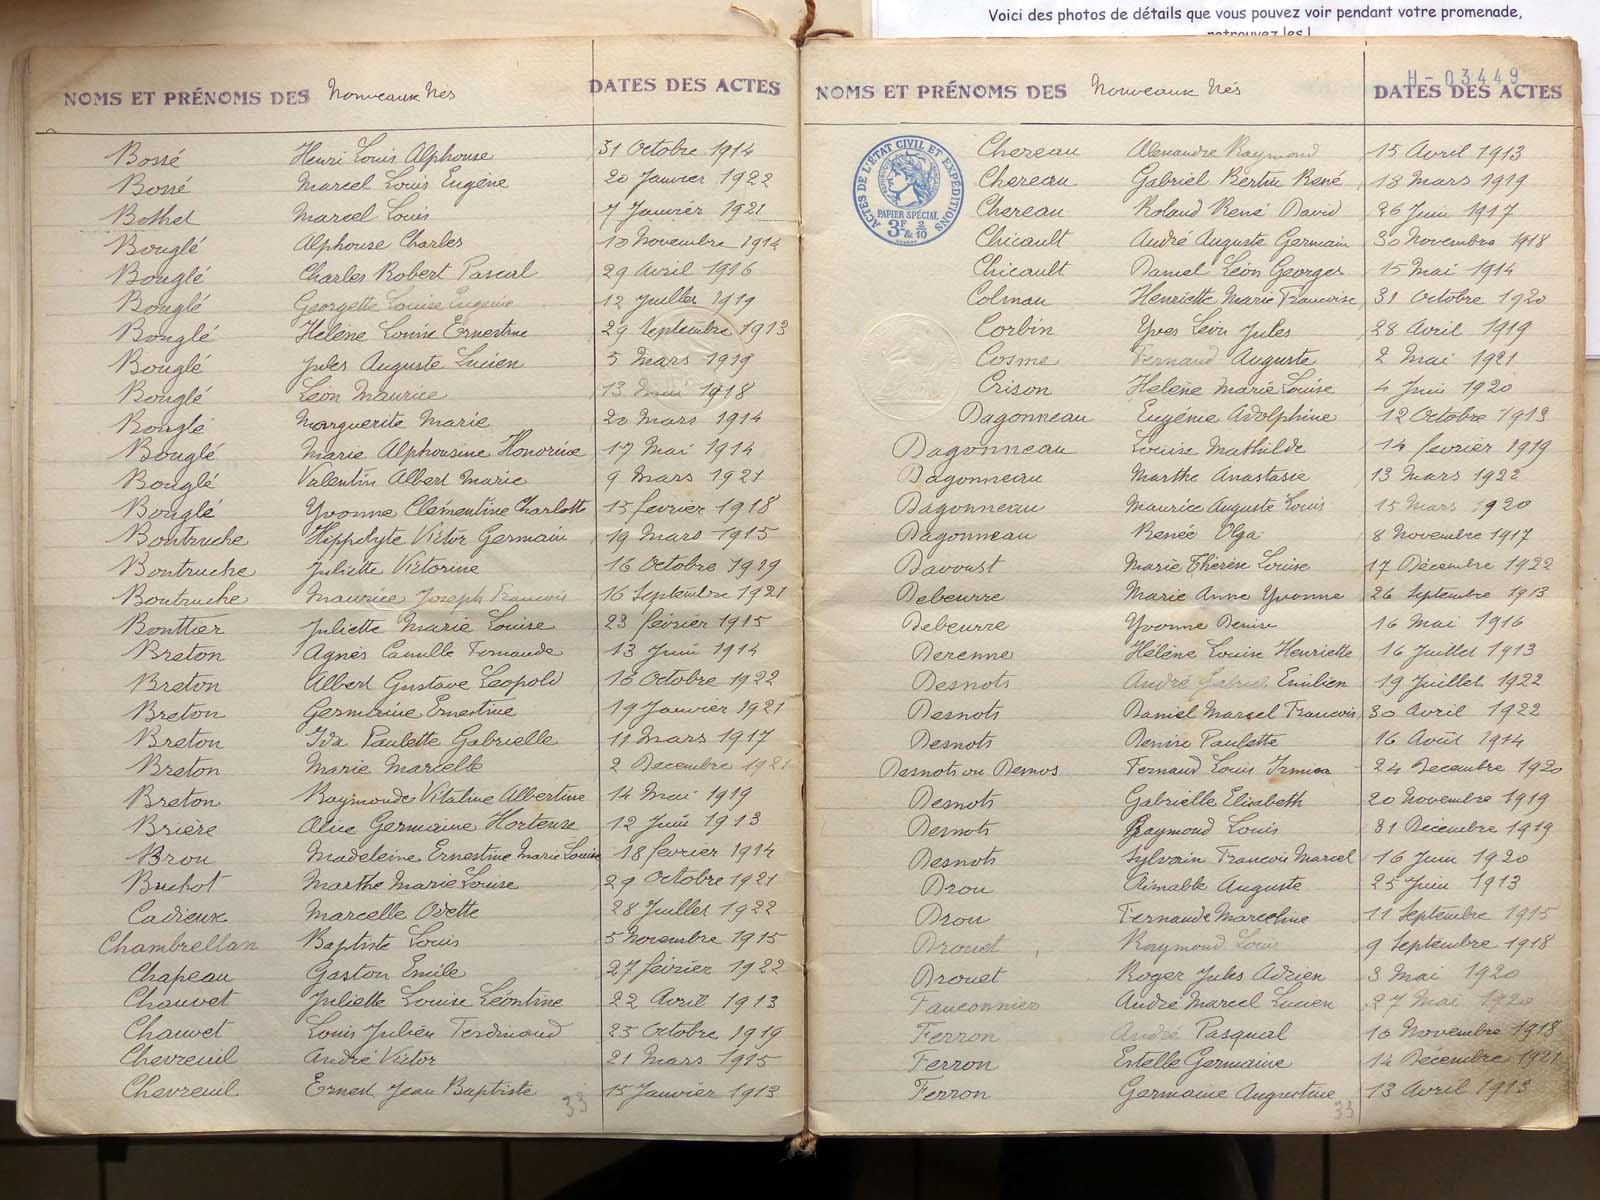 Voici des photos de détails que vous pouvez voir pendant votre promenade,
retrouvez les !
NOMS ET PRÉNOMS DES Nouveaux Nés DATES DES ACTES
Bossé Henri Louis Alphonse 31 Octobre 1914
Bossé Marcel Louis Eugène 20 Janvier 1922
Bothet Marcel Louis 7 Janvier 1921
Bouglé Alphonse Charles 10 Novembre 1914
Bouglé Charles Robert Pascal 29 Avril 1916
Bouglé Georgette Louise Eugénie 12 Juillet 1919
Bouglé Hélène Louise Ernestine 29 Septembre 1913
Bouglé Jules Auguste Lucien 5 Mars 1919
Bouglé Léon Maurice 13 Mai 1918
Bouglé Marguerite Marie 20 Mars 1914
Bouglé Marie Alphonsine Honorine 17 Mai 1914
Bouglé Valentin Albert Marie 9 Mars 1921
Bouglé Yvonne Clémentine Charlotte 15 février 1918
Boutruche Hippolyte Victor Germain 19 Mars 1915
Boutruche Juliette Victorine 16 Octobre 1919
Boutruche Maurice Joseph Francois 16 Septembre 1921
Bouttier Juliette Marie Louise 23 février 1915
Breton Agnès Camille Fernande 13 Juin 1914
Breton Albert Gustave Léopold 16 Octobre 1922
Breton Germaine Ernestine 19 Janvier 1921
Breton Ida Paulette Gabrielle 11 Mars 1917
Breton Marie Marcelle 2 Decembre 1921
Breton Raymonde Vitaline Albertine 14 Mai 1919
Brière Alice Germaine Hortense 12 Juin 1913
Brou Madeleine Ernestine Marie Louise 18 février 1914
Buchot Marthe Marie Louise 29 Octobre 1921
Cadieux Marcelle Odette 28 Juillet 1922
Chambrellan Baptiste Louis 5 Novembre 1915
Chapeau Gaston Emile 27 février 1922
Chauvet Juliette Louise Léontine 22 Avril 1913
Chauvet Louis Julien Ferdinand 25 Octobre 1919
Chevreuil André Victor 21 Mars 1915
Chevreuil Ernest Jean Baptiste 15 Janvier 1913
33
H-03449
NOMS ET PRÉNOMS DES Nouveaux Nés DATES DES ACTES
ACTES DE L'ÉTAT CIVIL ET EXPÉDITIONS
PAPIER SPÉCIAL
3F & 2/10
Chereau Alexandre Raymond 15 Avril 1913
Chereau Gabriel Bertin René 18 Mars 1919
Chereau Roland René David 26 Juin 1917
Chicault André Auguste Germain 30 Novembre 1918
Chicault Daniel Léon Georges 15 Mai 1914
Colmau Henriette Marie Francoise 31 Octobre 1920
Corbin Yves Léon Jules 28 Avril 1919
Cosme Fernand Auguste 2 Mai 1921
Crison Helène Marie Louise 4 Juin 1920
Dagonneau Eugénie Adolphine 12 Octobre 1913
Dagonneau Louise Mathilde 14 février 1919
Dagonneau Marthe Anastasie 13 Mars 1922
Dagonneau Maurice Auguste Louis 15 Mars 1920
Dagonneau Renée Olga 8 Novembre 1917
Davoust Marie Thérèse Louise 17 Décembre 1922
Debeurre Marie Anne Yvonne 26 Septembre 1913
Debeurre Yvonne Denise 16 Mai 1916
Derenne Hélène Louise Henriette 16 Juillet 1913
Desnots André Gabriel Emilien 19 Juillet 1922
Desnots Daniel Marcel Francois 30 Avril 1922
Desnots Denise Paulette 16 Août 1914
Desnots ou Desnos Fernand Louis 24 Decembre 1920
Desnots Gabrielle Elisabeth 20 Novembre 1919
Desnots Raymond Louis 31 Décembre 1919
Desnots Sylvain Francois Marcel 16 Juin 1920
Drou Aimable Auguste 25 Juin 1913
Drou Fernande Marceline 11 Septembre 1915
Drouet Raymond Louis 9 Septembre 1918
Drouet Roger Jules Adrien 3 Mai 1920
Fauconnier André Marcel Lucien 27 Mai 1920
Ferron André Pasqual 10 Novembre 1918
Ferron Estelle Germaine 14 Decembre 1921
Ferron Germaine Augustine 13 Avril 1913
33